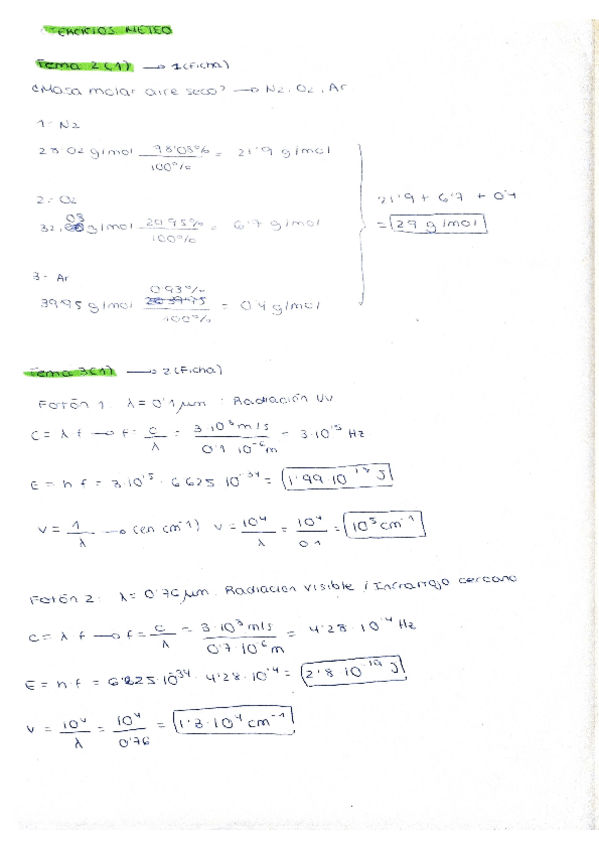 EJERCICIOS METEO
Tema 2(1) → 1(Ficha)
¿Masa molar aire seco? → N2, O2, Ar
1- N2
28'02 g/mol 78'08% / 100% = 21'9 g/mol
2- O2
32,03 g/mol 20'95% / 100% = 6'7 g/mol
21'9 + 6'7 + 0'4
= 29 g/mol
3- Ar
39'95 g/mol 0'93% / 100% = 0'4 g/mol
Tema 3(1) → 2(Ficha)
Fotón 1: λ = 0'1 μm : Radiación UV
C = λ f → f = c / λ = 3·10^8 m/s / 0'1·10^-6 m = 3·10^15 Hz
E = h f = 3·10^15 · 6'625·10^-34 = 1'99·10^-18 J
ν = 1 / λ → (en cm^-1) ν = 10^4 / λ = 10^4 / 0'1 = 10^5 cm^-1
Fotón 2: λ = 0'76 μm. Radiación visible / Infrarrojo cercano
C = λ f → f = c / λ = 3·10^8 m/s / 0'7·10^-6 m = 4'28·10^14 Hz
E = h·f = 6'625·10^-34 · 4'28·10^14 = 2'8·10^-19 J
ν = 10^4 / λ = 10^4 / 0'76 = 1'3·10^4 cm^-1